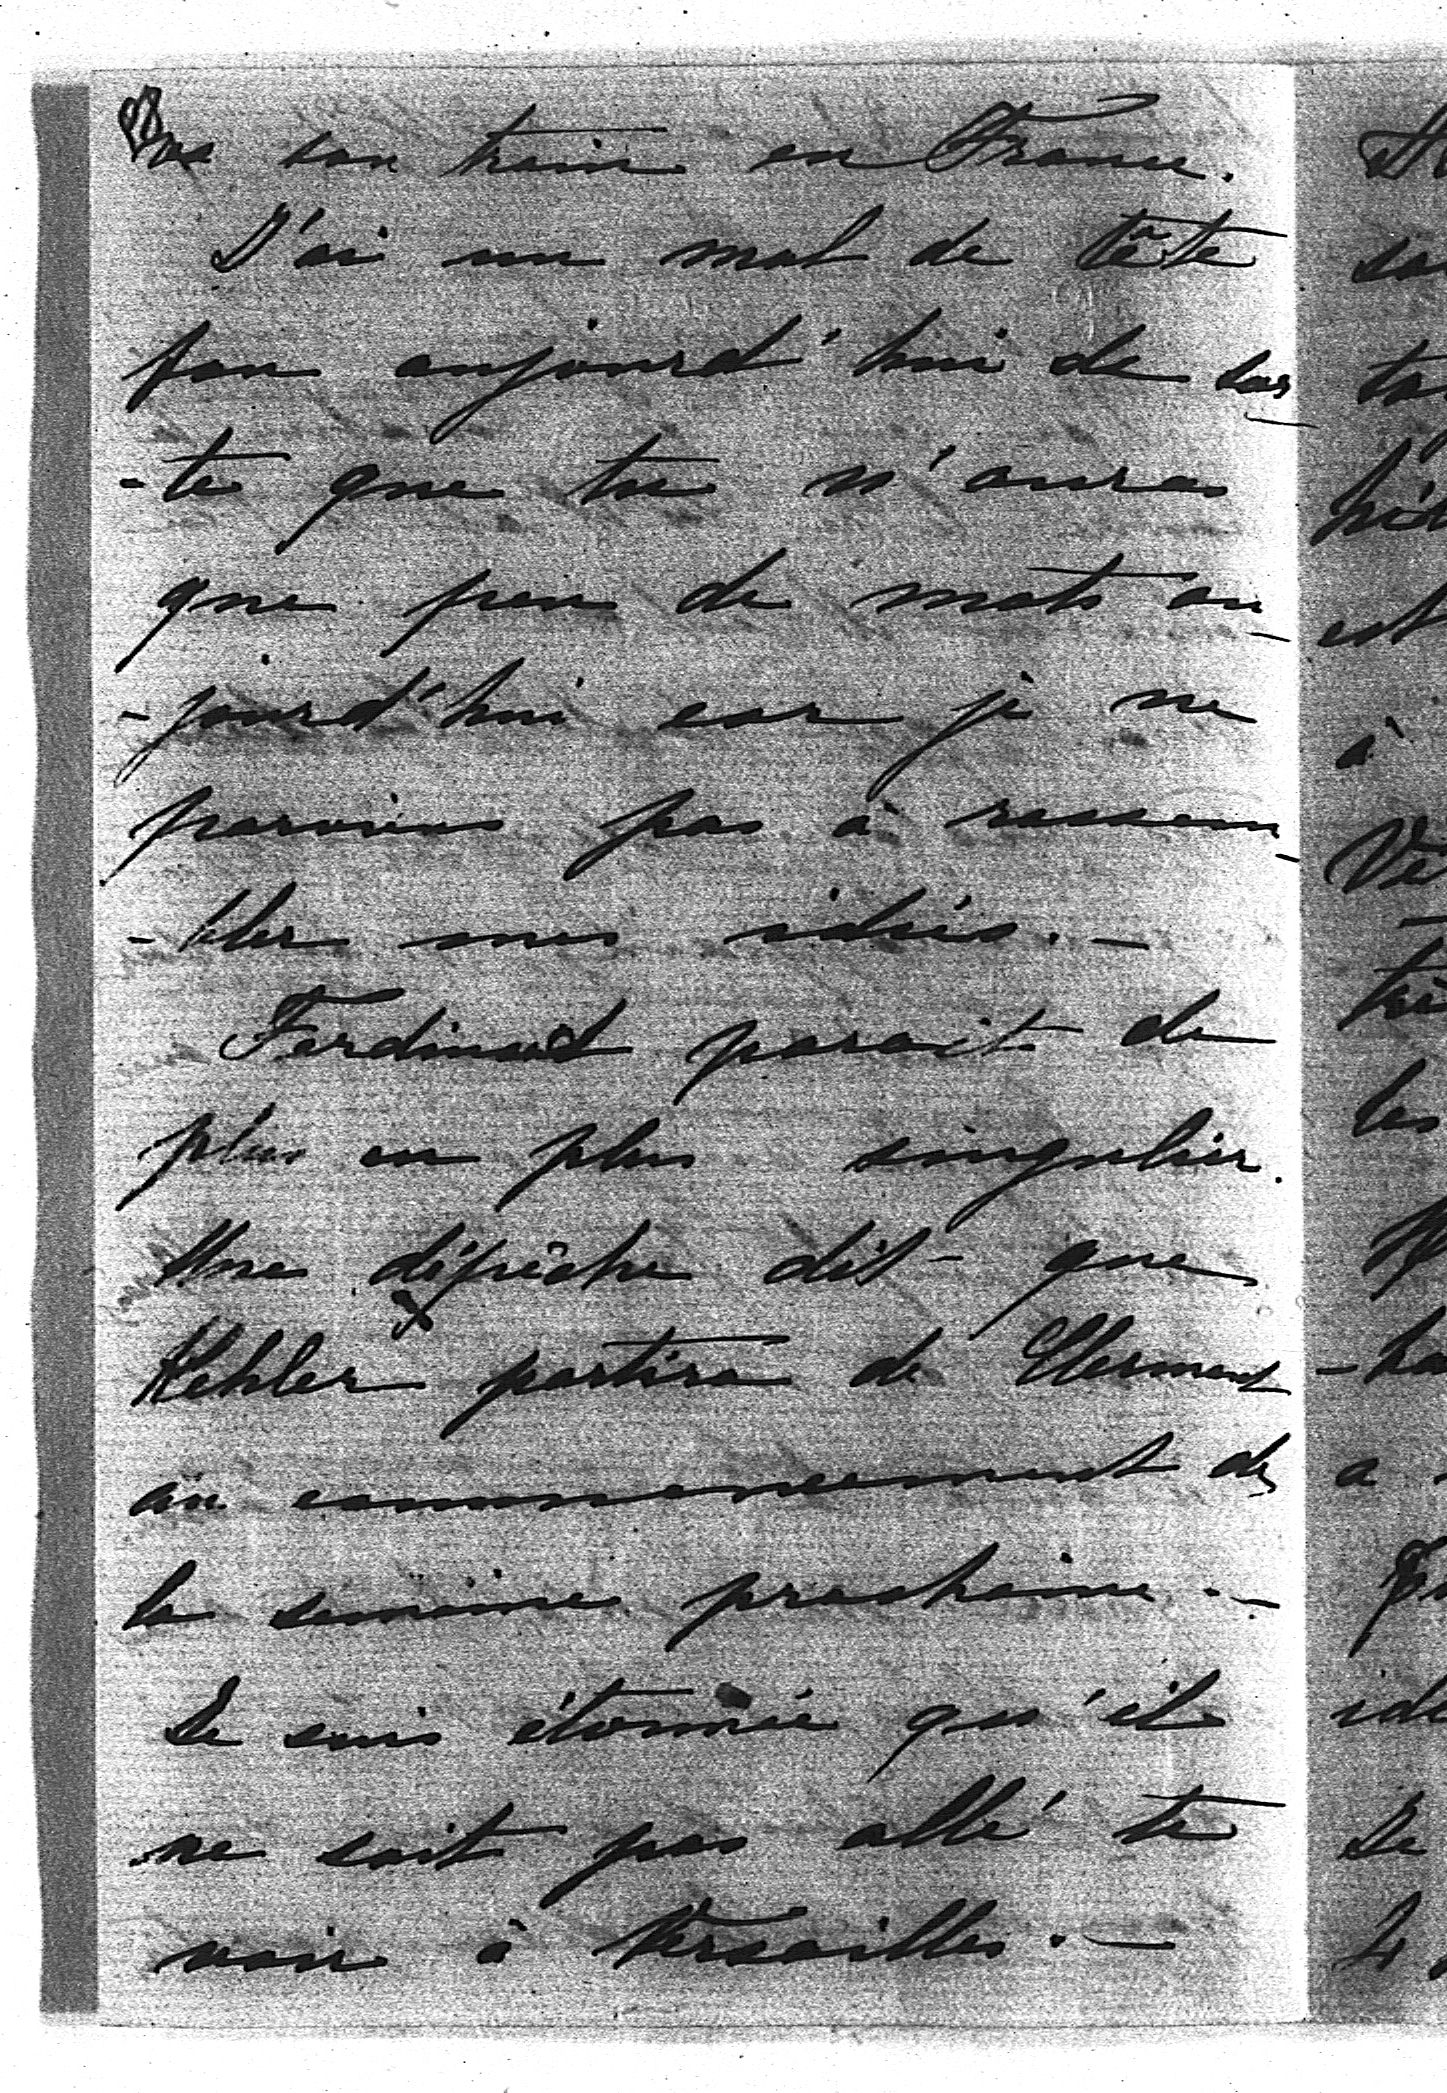 va son train en France.
J'ai un mal de tête
fou aujourd'hui de sor
-te que tu n'auras
que peu de mots au
-jourd'hui car je ne
parviens pas à rassem
-bler mes idées. —
Ferdinand parait de
plus en plus singulier.
Une dépêche dit que
Kehler partira de Clermont
au commencement de
la semaine prochaine. —
Je suis étonnée qu'il
ne soit pas allé te
voir à Versailles. —